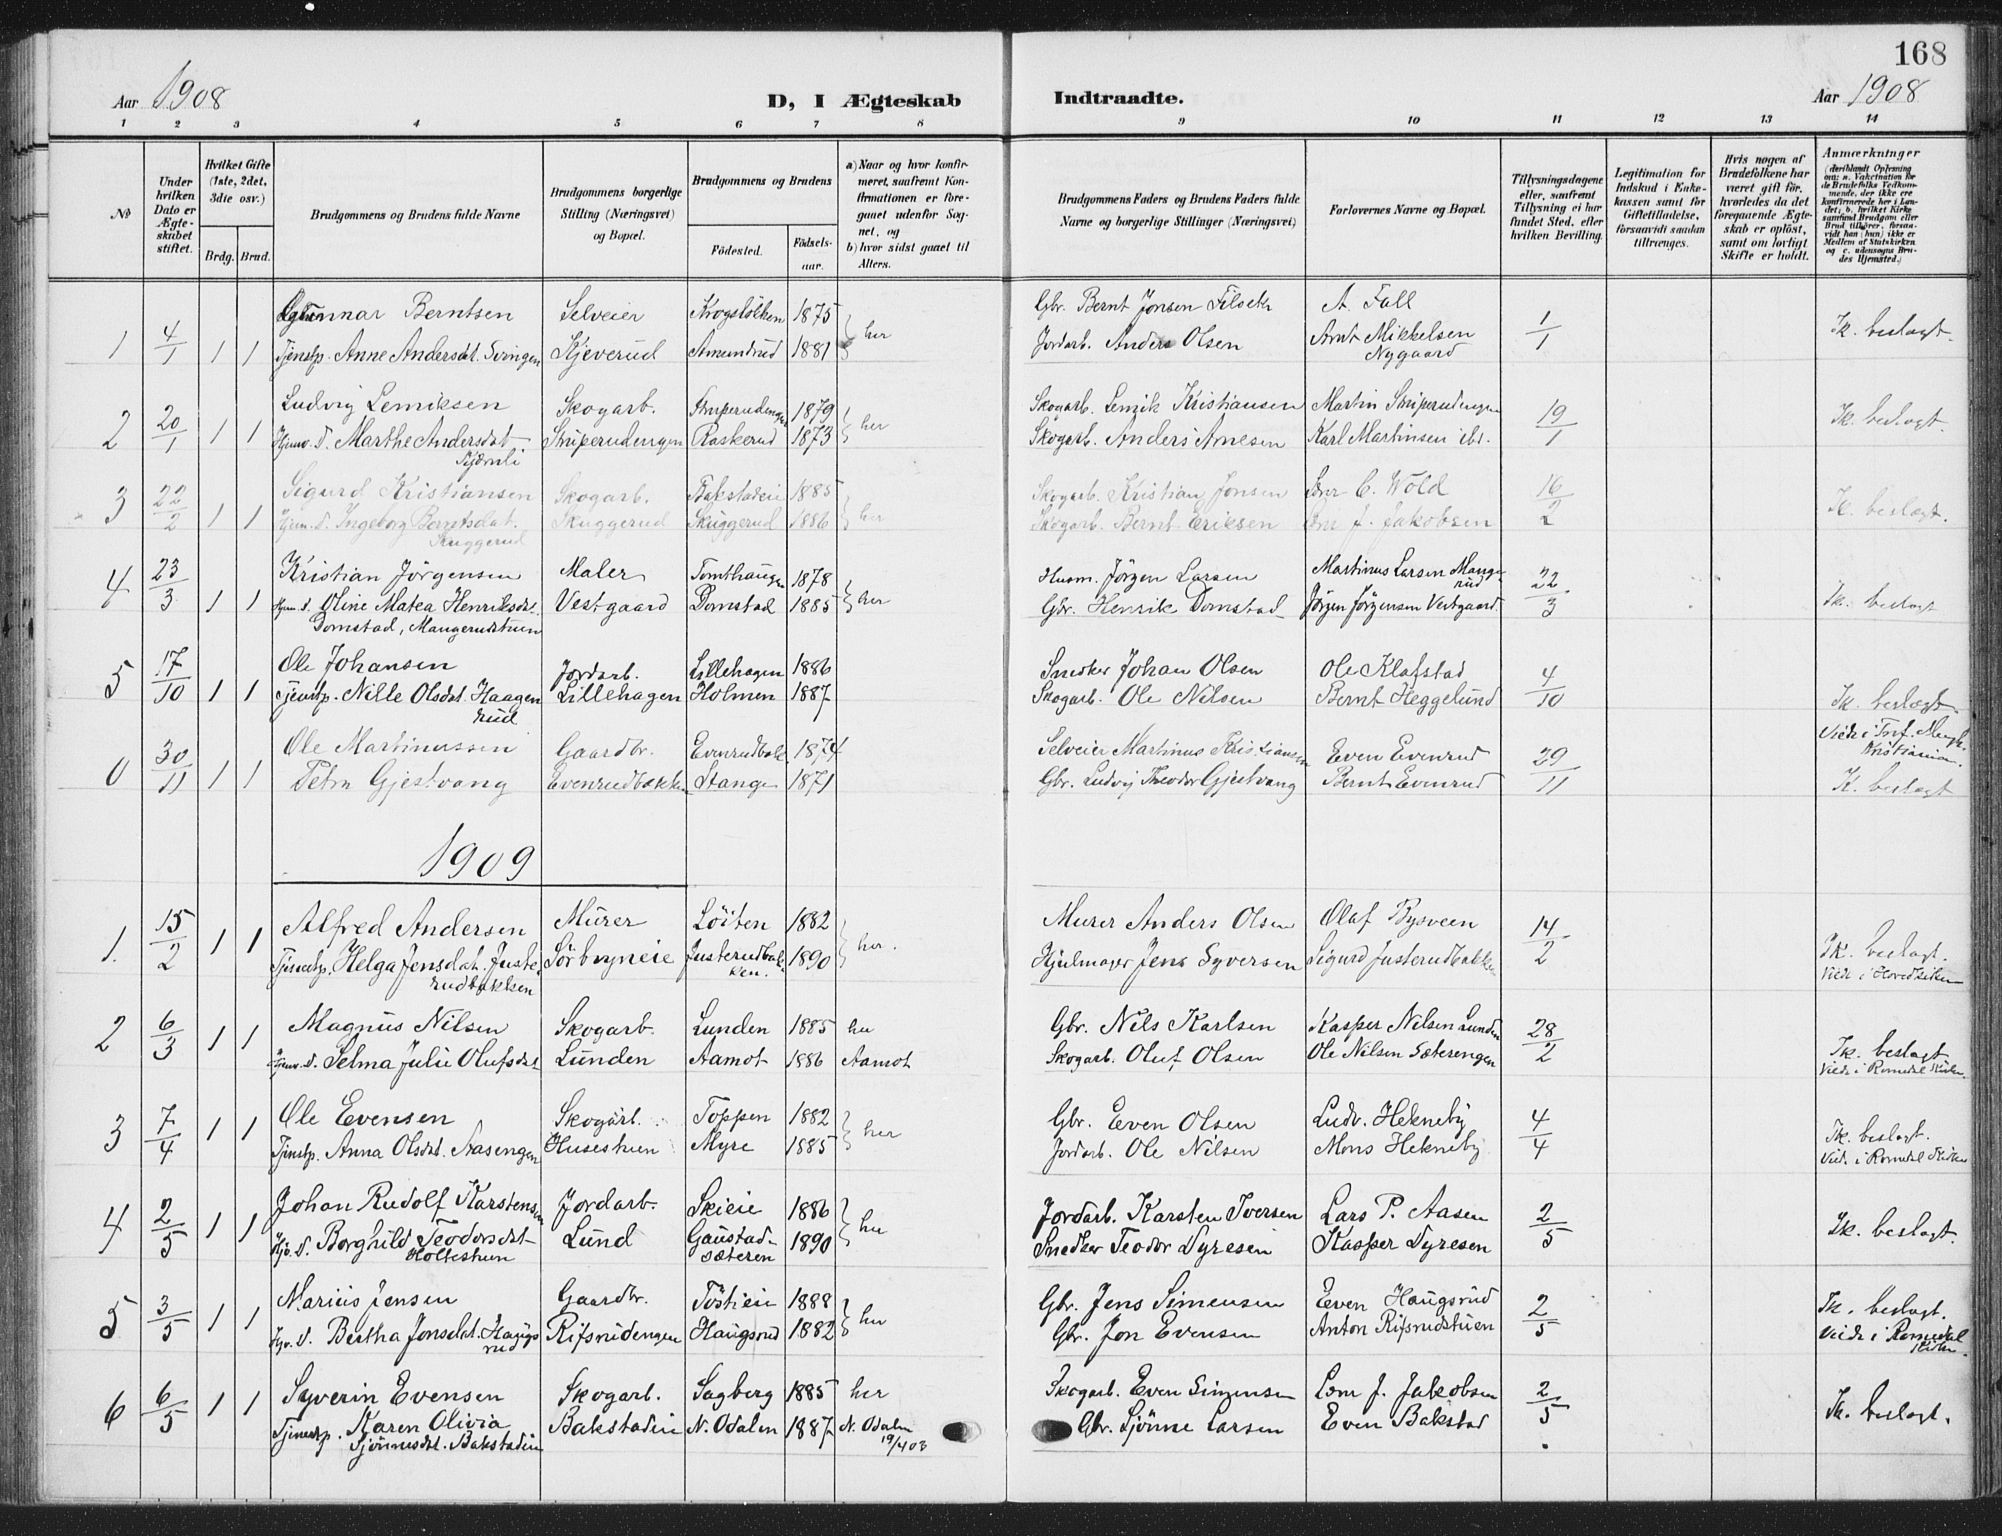 168
Aar 1908
D, I Ægteskab Indtraadte.
Aar 1908
1 2 3 4 5 6 7 8 9 10 11 12 13 14
No
Under hvilken Dato er Ægteskabet stiftet.
Hvilket Gifte (1ste, 2det, 3die osv.)
Brdg. Brud.
Brudgommens og Brudens fulde Navne
Brudgommens borgerlige Stilling (Næringsvei) og Bopæl.
Brudgommens og Brudens
Födested.
Födselsaar.
a) Naar og hvor konfirmeret, saafremt Konfirmationen er foregaaet udenfor Sognet, og
b) hvor sidst gaaet til Alters.
Brudgommens Faders og Brudens Faders fulde Navne og borgerlige Stillinger (Næringsvei)
Forlovernes Navne og Bopæl.
Tillysningsdagene eller, saafremt Tillysning ei har fundet Sted, efter hvilken Bevilling.
Legitimation for Indskud i Enkekassen samt for Giftetilladelse, forsaavidt saadan tiltrænges.
Hvis nogen af Brudefolkene har været gift för, hvorledes da det foregaaende Ægteskab er oplöst, samt om lovligt Skifte er holdt.
Anmærkninger
1 4/1 1 1 Gunnar Berntsen Selveier 1875 her Gbr. Bernt Jonsen A. Fall 1/1
Tjenstp. Anne Andersdt. Svingen Kjeverud Amundrud 1881 Jordarb. Anders Olsen Arnt Mikkelsen Nygaard Ik. beslægt.
2 20/1 1 1 Ludvig Lemiksen Skogarb. 1879 her Skogarb. Kristiansen Martin Sniperudengen 19/1
Hjemv. D. Marthe Andersdat Sniperudengen Raskerud 1873 Skogarb. Anders Arnesen Karl Martinsen ibd. Ik. beslægt.
3 22/2 1 1 Sigurd Kristiansen Skogarb. Bakstadeie 1885 her Skogarb. Kristian Jonsen C. Wold 16/2
Hjem. D. Ingeborg Berntsdat. Skuggerud Skuggerud Skuggerud 1886 Skogarb. Bernt Eriksen J. Jakobsen Ik. beslægt.
4 23/3 1 1 Kristian Jörgensen Maler Tomthaugen 1878 her Husm. Jörgen Larsen Martinus Larsen Mangerud 22/3
Hjem. D. Oline Matea Henriksdat. Domstad, Mangerudstuen Vestgaard Domstad 1885 Gbr. Henrik Domstad Jörgen Jörgensen Vestgaard. Ik. beslægt
5 17/10 1 1 Ole Johansen Jordarb. Lillehagen 1886 Snedker Johan Olsen Ole Klafstad 4/10
Tjenstp. Nille Olsdat. Haagenrud Lillehagen Holmen 1887 Skogarb. Ole Nilsen Bernt Heggelund Ik. beslægt.
30/11 1 1 Ole Martinussen Gaardbr. Evenrudbak. 1874 Selveier Martinus Kristiansen Even Evenrud 29/11 Viede i Kristiania.
Petra Gjestvang Evenrudbakken Stange 1871 Gbr. Ludvig Theodor Gjestvang Bernt Evenrud Ik. beslægt
1909
1. 15/2 1 1 Alfred Andersen Murer Löiten 1882 her. Murer Anders Olsen Olaf Bysveen 14/2
Tjenestp. Helga Jensdat. Justerudbakken Sörbyneie Justerudbakken. 1890 Hjulmager Jens Syversen Sigurd Justerudbakken Ik. beslægt.
Viede i Hovedkirken
2 6/3 1 1 Magnus Nilsen Skogarb. Lunden 1885 her Gbr. Nils Karlsen Kasper Nilsen Lunden 28/2
Hjemv. D. Selma Julie Olufsdat Lunden Aamot 1886 Aamot Skogarb. Oluf Olsen Ole Nilsen Sæterengen Ik. beslægt
Viede i Romedal Kirke.
3 7/4 1 1 Ole Evensen Skogarb. Toppen 1882 her Gbr. Even Olsen Ludv. Hekneby 4/4
Tjenstp. Anna Olsdat. Aasengen Husestuen Myre 1885 Jordarb. Ole Nilsen Mons Hekneby Ik. beslægt.
Vied. i Romedal Kirke
4 2/5 1 1 Johan Rudolf Karstensen Jordarb. Skieie 1886 her Jordarb. Karsten Iversen Lars P. Aasen 2/5
Hjv. D. Borghild Teodorsdat Holtestuen Lund Gaustadsæteren 1890 Snedker Teodor Dyresen Kasper Dyresen Ik. beslægt.
5 3/5 1 1 Marius Jensen Gaardbr. Töstieie 1888 her Gbr. Jens Simensen Even Haugsrud 2/5
Hjv. D. Bertha Jonsdat. Haugsrud Rifsrudengen Haugsrud 1882 Gbr. Jon Evensen Anton Rifsrudstuen Ik. beslægt.
Viede i Romedal Kirke.
6 6/5 1 1 Syverin Evensen Skogarb. Sagberg 1885 her Skogarb. Even Simensen J. Jakobsen 2/5
Tjenestp. Karen Olivia Sjönnesdat. Bakstadeie Bakstadeie N. Odalen 1887 N. Odalen 19/4 03 Gbr. Sjönne Larsen Even Bakstad Ik. beslægt.